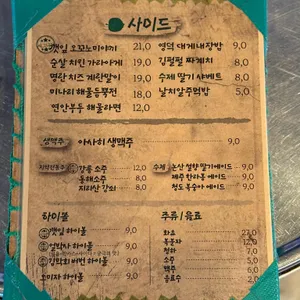 사이드
깻잎 오꼬노미야끼 21,0
순살 치킨 가라아게 19,0
명란 치즈 계란말이 19,0
미나리 해물듬뿍전 18,0
연안부두 해물라면 12,0
영덕 대게내장밥 9,0
김펄펄 짜계치 8,0
수제 딸기 샤베트 8,0
날치알주먹밥 5,0
생맥주 아사히 생맥주 9,0
지역전통주
강릉 소주 12,0
동해소주 8,0
지리산 강쇠 8,0
수제
논산 설향 딸기에이드 9,0
제주 한라봉 에이드 9,0
청도 복숭아 에이드 9,0
하이볼
깻잎 하이볼 9,0
얼박사 하이볼 9,0
김막회 버번 하이볼 9,0
오미자 하이볼 9,0
주류/음료
화요 27,0
복분자 12,0
청하 7,0
소주 5,0
맥주 6,0
음료수 2,0